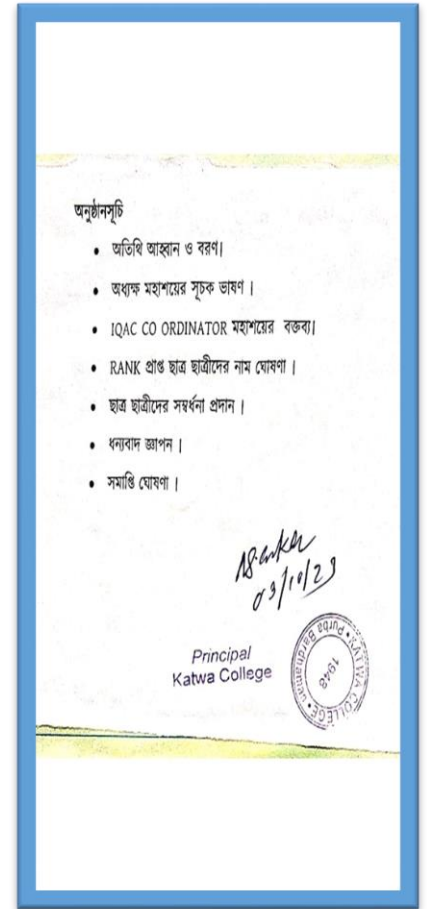 অনুষ্ঠানসূচি
• অতিথি আহ্বান ও বরণ।
• অধ্যক্ষ মহাশয়ের সূচক ভাষণ।
• IQAC CO ORDINATOR মহাশয়ের বক্তব্য।
• RANK প্রাপ্ত ছাত্র ছাত্রীদের নাম ঘোষণা।
• ছাত্র ছাত্রীদের সম্বর্ধনা প্রদান।
• ধন্যবাদ জ্ঞাপন।
• সমাপ্তি ঘোষণা।
03/10/23
Principal
Katwa College
KATWA COLLEGE • Purba Bardhaman •
1948